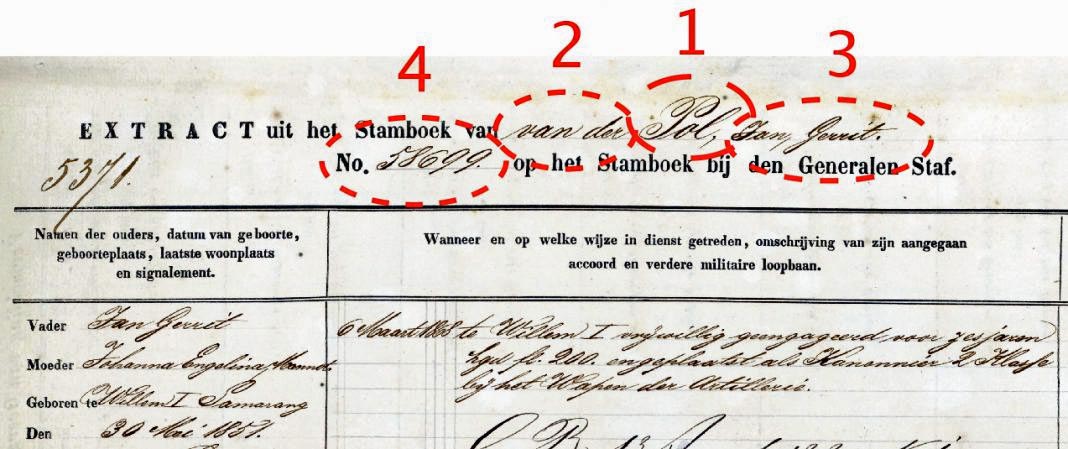 4 2 1 3
EXTRACT uit het Stamboek van van der Pol, Jan Gerrit.
5371.
No. 58699. op het Stamboek bij den Generalen Staf.
Namen der ouders, datum van geboorte,
geboorteplaats, laatste woonplaats
en signalement.
Wanneer en op welke wijze in dienst getreden, omschrijving van zijn aangegaan
accoord en verdere militaire loopbaan.
Vader Jan Gerrit
Moeder Johanna Engelina
Geboren te Willem I Samarang
Den 30 Mei 1857.
6 Maart te Willem I vrijwillig geengageerd voor zes jaren
f 200. en geplaatst als Kanonnier 2 Klasse
bij het Wapen der Artillerie.